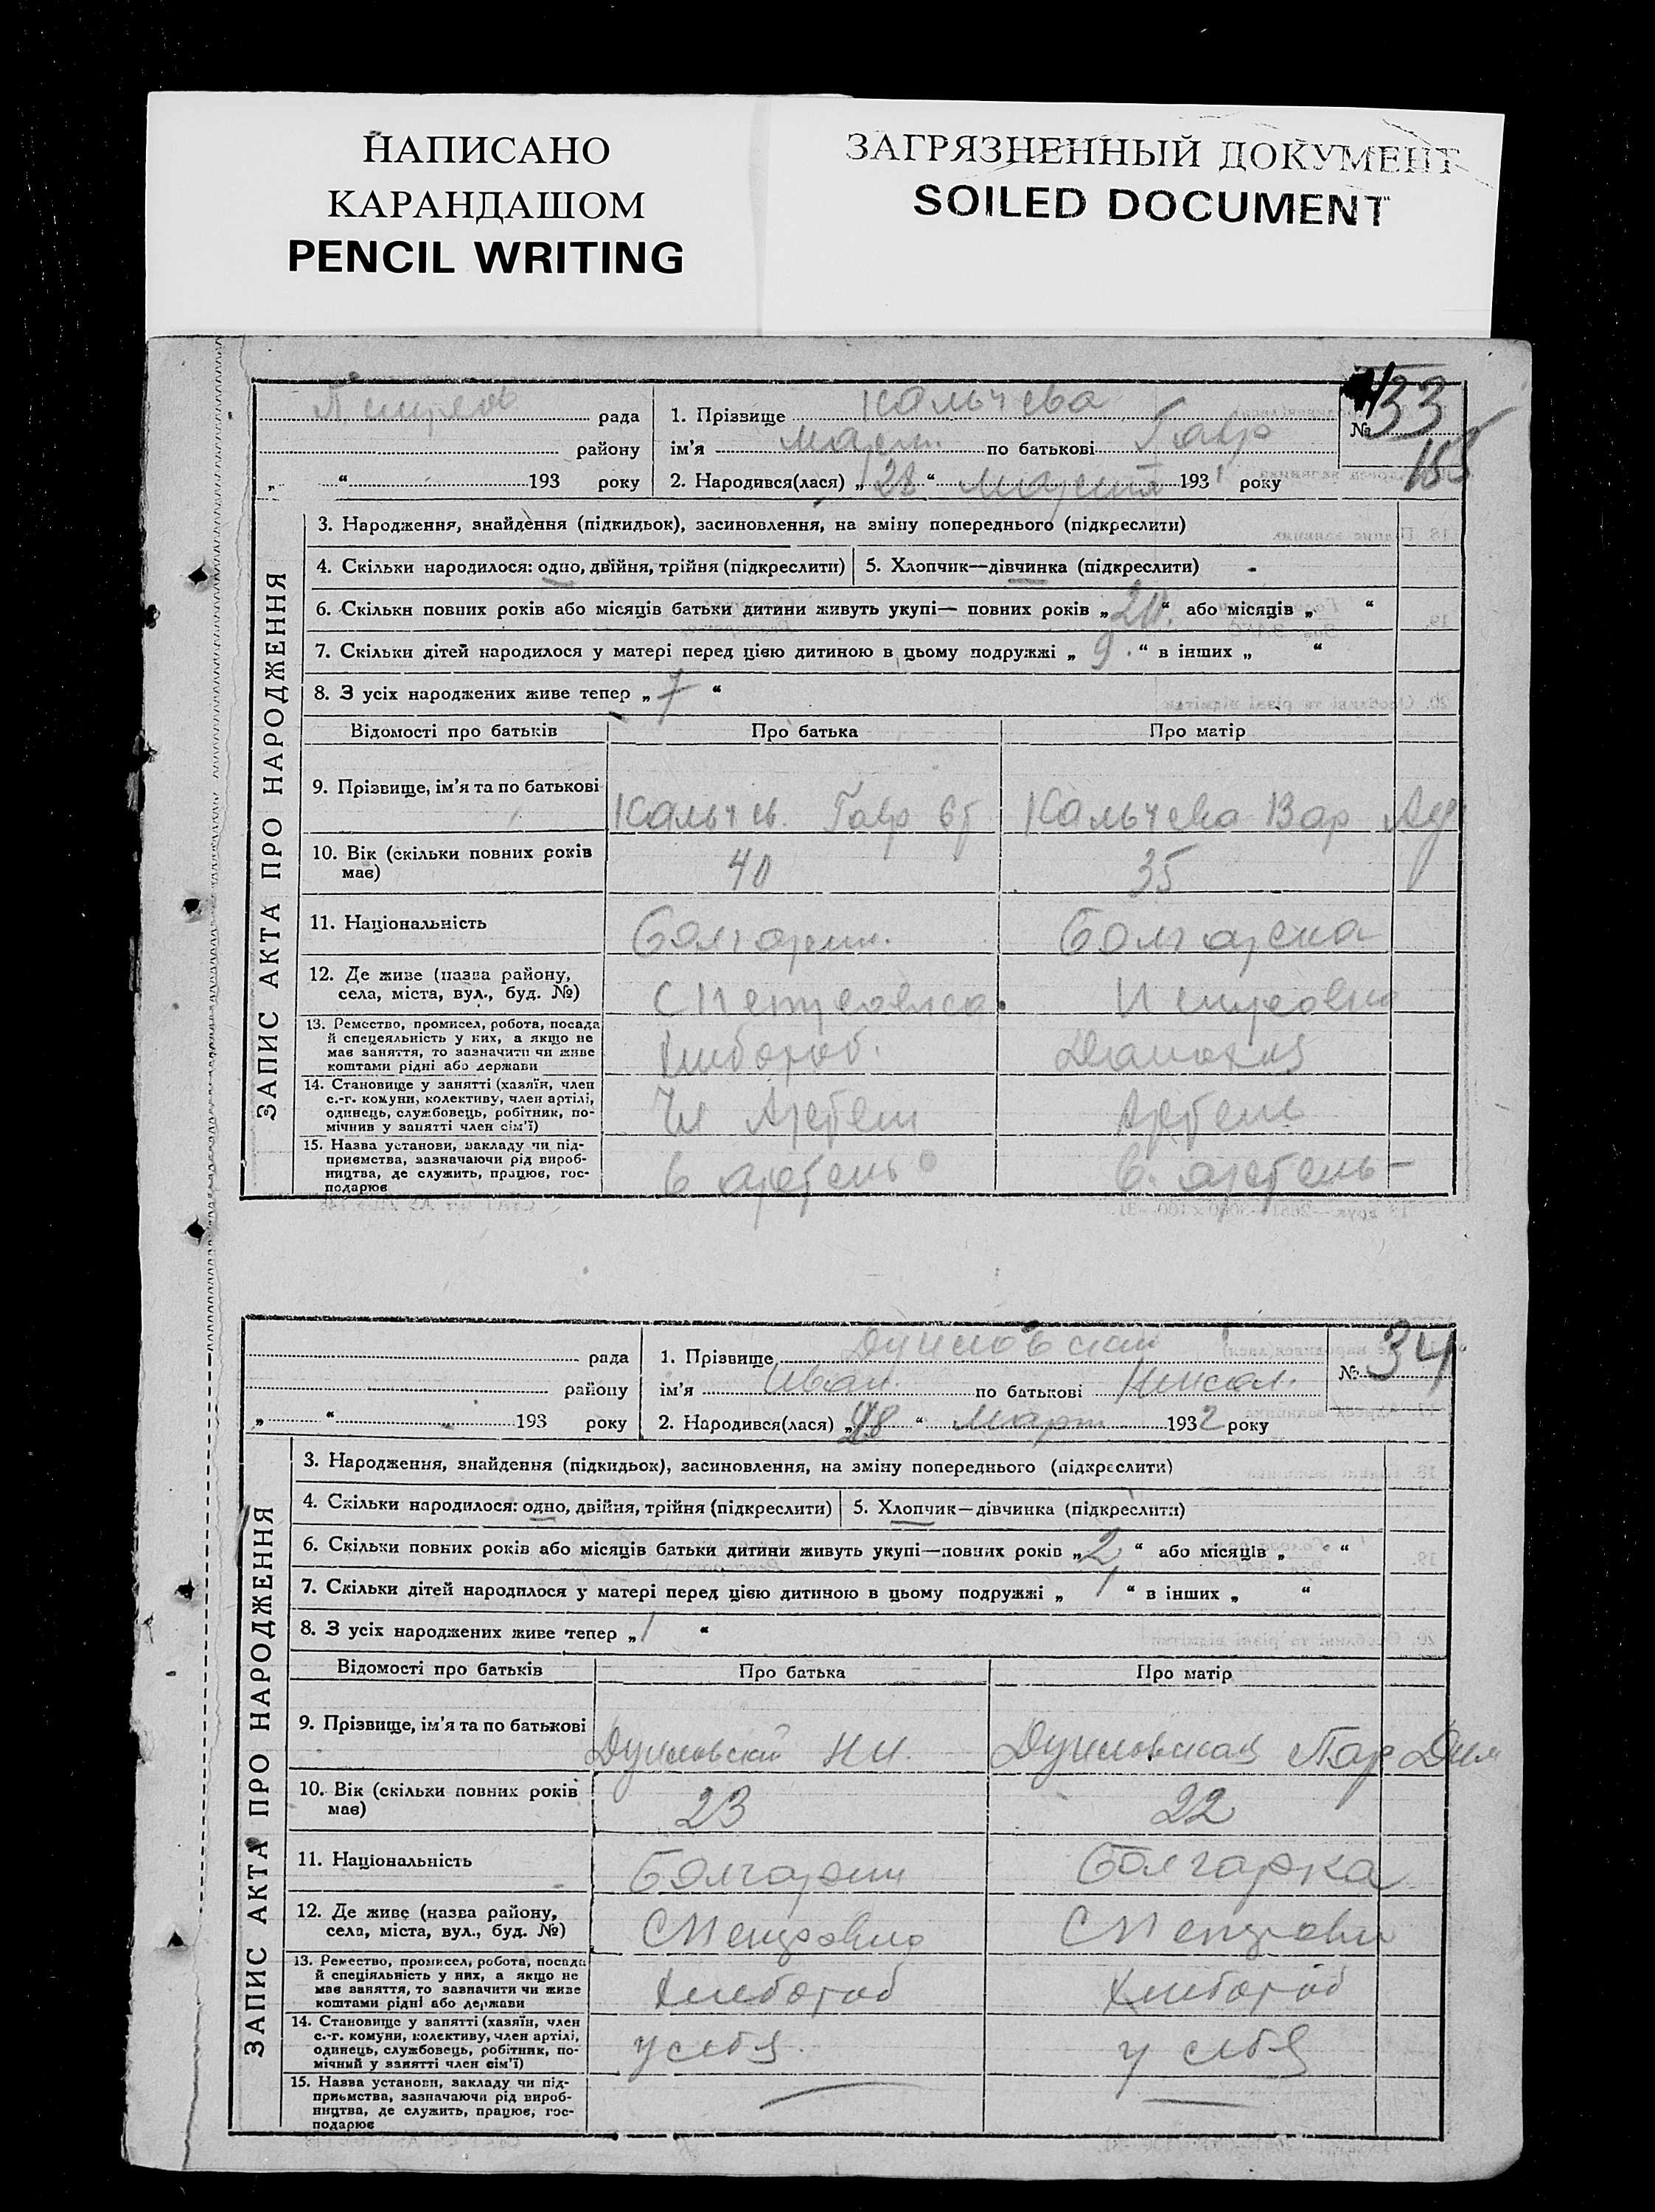 НАПИСАНО
КАРАНДАШОМ
PENCIL WRITING
ЗАГРЯЗНЕННЫЙ ДОКУМЕНТ
SOILED DOCUMENT
рада
1. Прізвище Кальчева
№ 33
району
ім'я по батькові Гавр
155
„ “ 193 року
2. Народився(лася) „28“ Марта 1931 року
ЗАПИС АКТА ПРО НАРОДЖЕННЯ
3. Народження, знайдення (підкидьок), засиновлення, на зміну попереднього (підкреслити)
4. Скільки народилося: одно, двійня, трійня (підкреслити)
5. Хлопчик—дівчинка (підкреслити)
6. Скільки повних років або місяців батьки дитини живуть укупі— повних років „20“ або місяців „ “
7. Скільки дітей народилося у матері перед цією дитиною в цьому подружжі „9“ в інших „ “
8. З усіх народжених живе тепер „7“
Відомості про батьків Про батька Про матір
9. Прізвище, ім'я та по батькові
Кальчев. Гавр Кальчева Вар
10. Вік (скільки повних років
має)
40 35
11. Національність
Болгарин. Болгарска
12. Де живе (назва району,
села, міста, вул., буд. №)
С Петровка Петровка
13. Ремество, промисел, робота, посада
й спецеяльність у них, а якщо не
має заняття, то зазначити чи живе
коштами рідні або держави
Хлибороб. Домохоз
14. Становище у занятті (хазяїн, член
с.-г. комуни, колективу, член артілі,
одинець, службовець, робітник, по-
мічник у занятті член сім'ї)
Чл Артели Артели
15. Назва установи, закладу чи під-
приємства, зазначаючи рід вироб-
ництва, де служить, працює, гос-
подарює
в артель в. артель
рада
1. Прізвище
№ 34
району
ім'я Иван. по батькові Никол.
„ “ 193 року
2. Народився(лася) „28“ Март 1932 року
ЗАПИС АКТА ПРО НАРОДЖЕННЯ
3. Народження, знайдення (підкидьок), засиновлення, на зміну попереднього (підкреслити)
4. Скільки народилося: одно, двійня, трійня (підкреслити)
5. Хлопчик—дівчинка (підкреслити)
6. Скільки повних років або місяців батьки дитини живуть укупі—повних років „2“ або місяців „ “
7. Скільки дітей народилося у матері перед цією дитиною в цьому подружжі „1“ в інших „ “
8. З усіх народжених живе тепер „1“
Відомості про батьків Про батька Про матір
9. Прізвище, ім'я та по батькові
Пар Дим
10. Вік (скільки повних років
має)
23 22
11. Національність
Болгарин Болгарка
12. Де живе (назва району,
села, міста, вул., буд. №)
С Петровка С Петровка
13. Ремество, промисел, робота, посада
й спеціяльність у них, а якщо не
має заняття, то зазначити чи живе
коштами рідні або держави
Хлебороб Хлебороб
14. Становище у занятті (хазяїн, член
с.-г. комуни, колективу, член артілі,
одинець, службовець, робітник, по-
мічний у занятті член сім'ї)
у себя. у себя
15. Назва установи, закладу чи під-
приємства, зазначаючи рід вироб-
ництва, де служить, працює, гос-
подарює